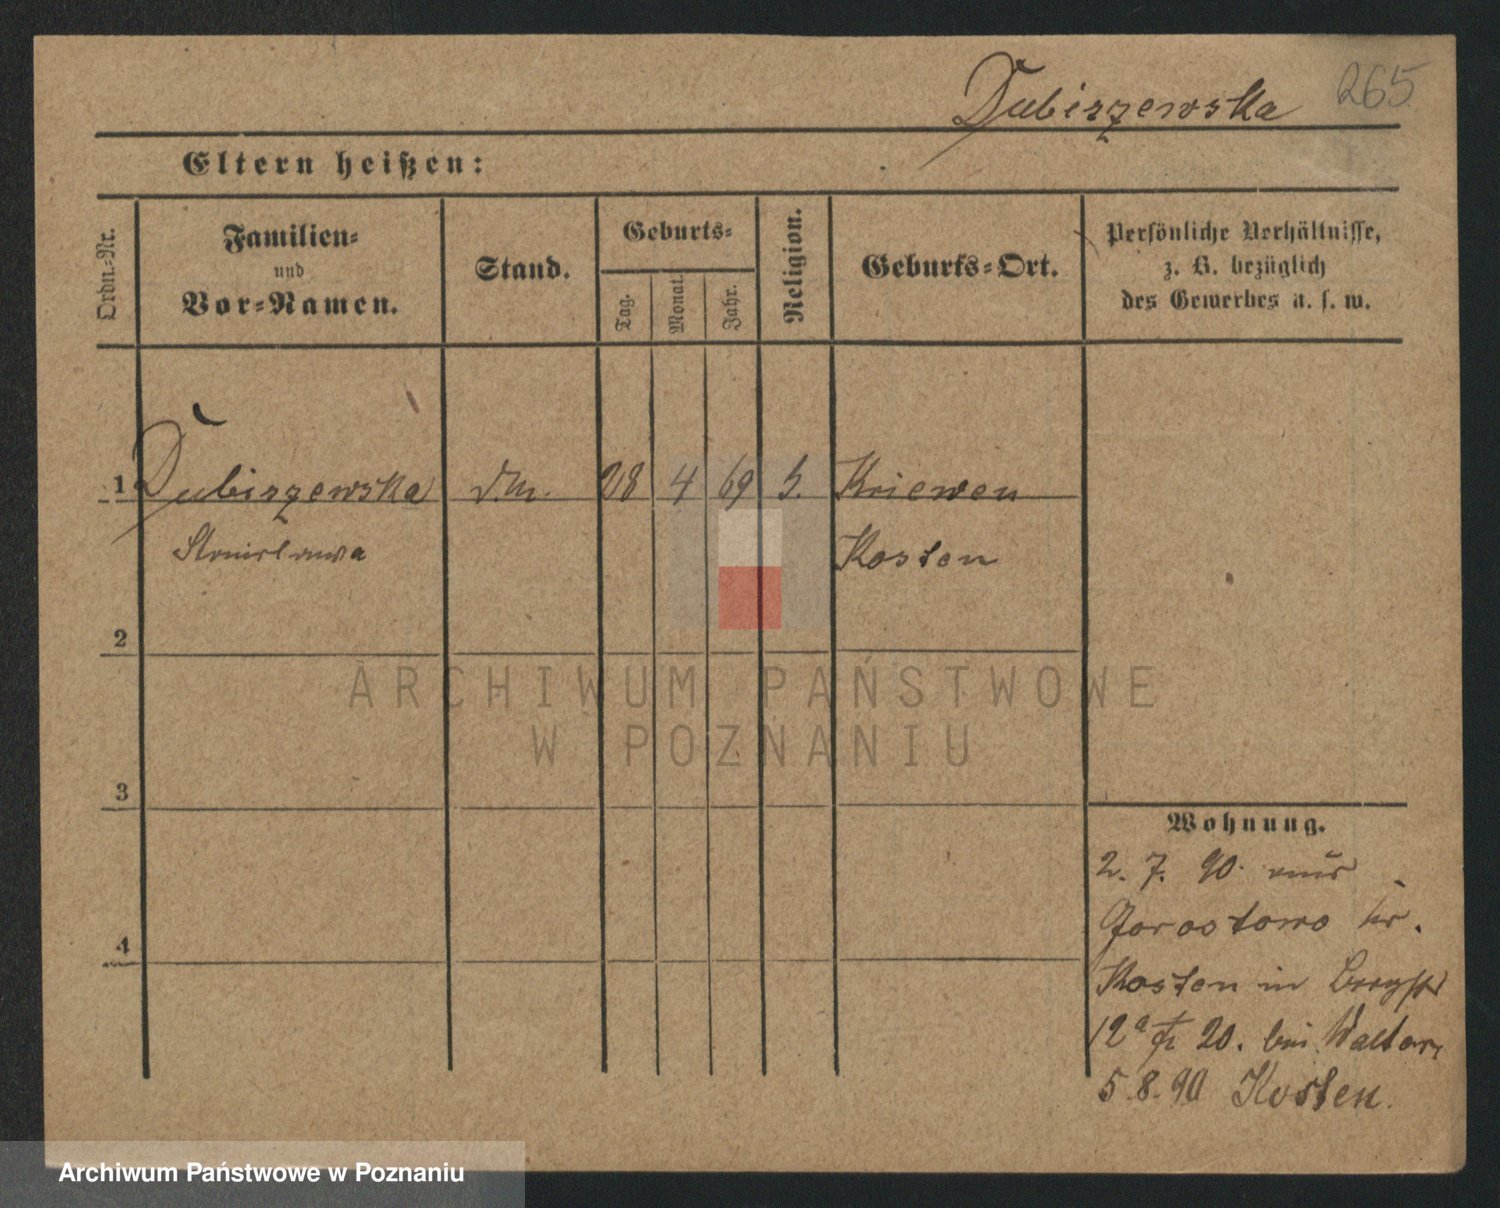 Dubiszewska 265
Eltern heißen:
Ordn.-Nr.
Familien-
und
Vor-Namen.
Stand.
Geburts-
Tag.
Monat.
Jahr.
Religion.
Geburts-Ort.
Persönliche Verhältnisse,
z. B. bezüglich
des Gewerbes u. s. w.
1 Dubiszewska 28 4 69 Kriewen
Stanislawa Kosten
2
3
4
Wohnung.
2. 7. 90. aus
Kosten in Bergstr
12a 20. bei Walter,
5.8.90 Kosten.
ARCHIWUM PAŃSTWOWE
W POZNANIU
Archiwum Państwowe w Poznaniu